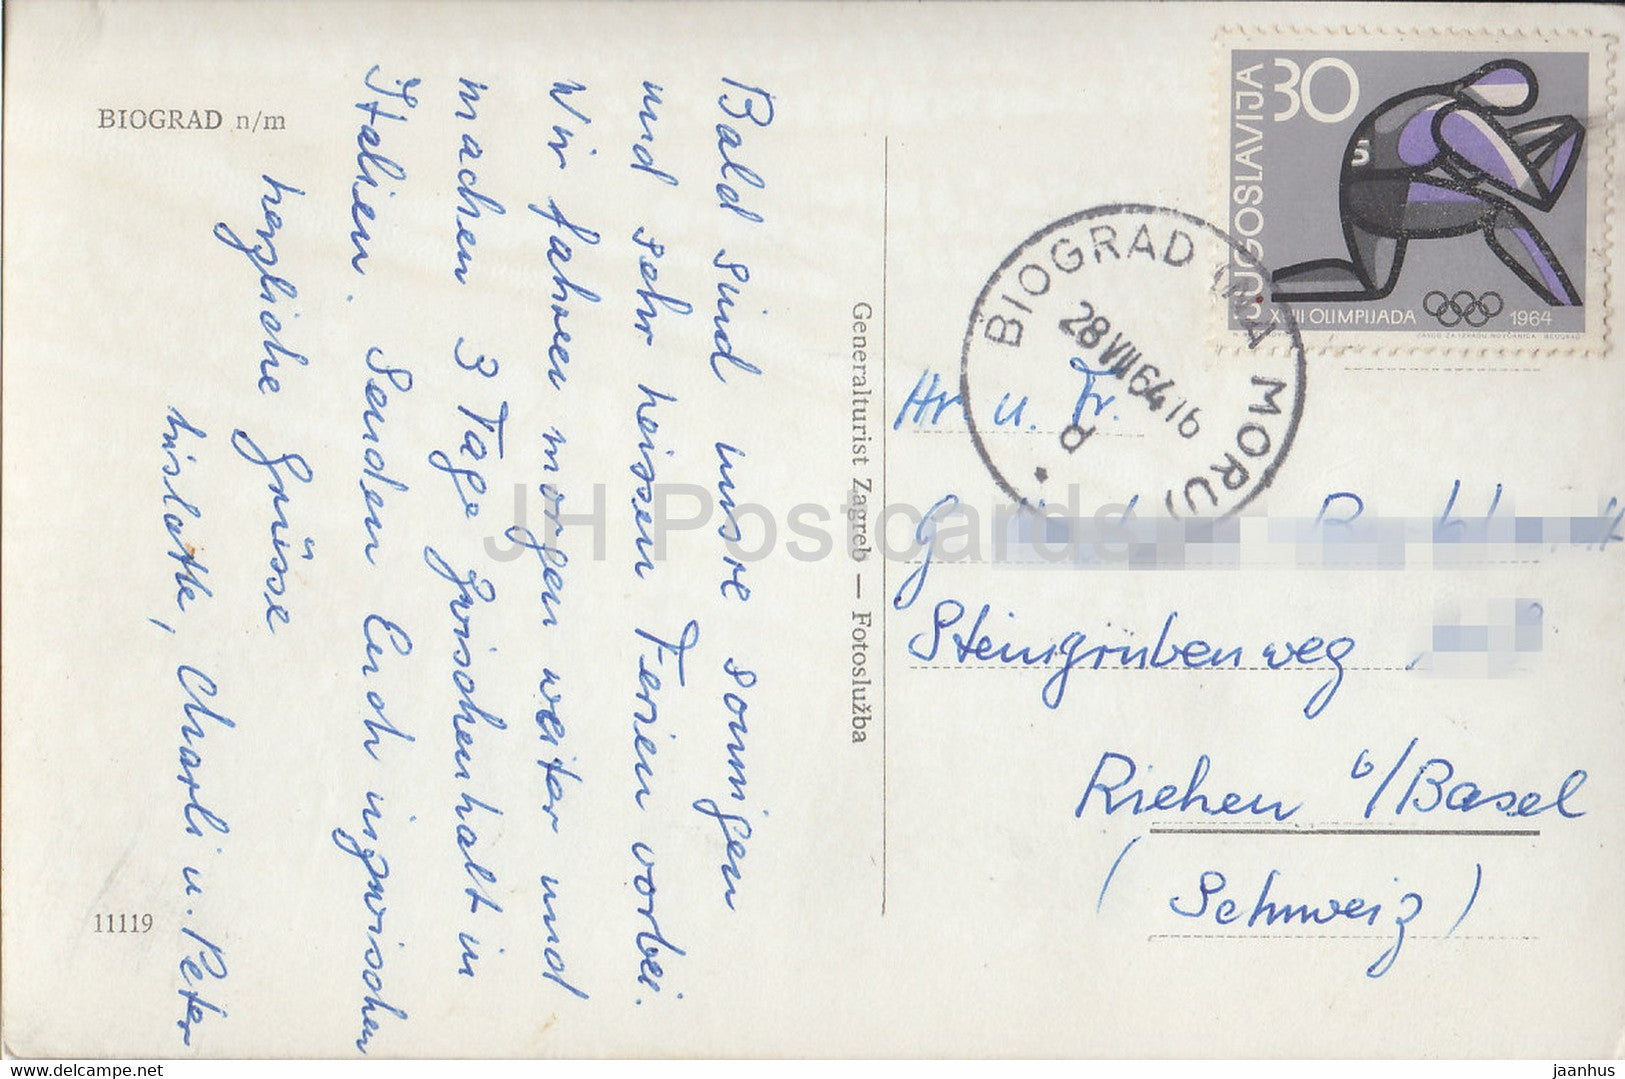 BIOGRAD n/m
Bald sind unsre sonnigen
und sehr heissen Ferien vorbei.
Wir fahren morgen weiter und
machen 3 Tage Zwischenhalt in
Italien. Senden Euch inzwischen
herzliche Grüsse
Liselotte, Charli u. Peter
11119
Generalturist Zagreb — Fotoslužba
JUGOSLAVIJA
30
S
XVIII OLIMPIJADA 1964
ZAVOD ZA IZRADU NOVČANICA - BEOGRAD
BIOGRAD (NA MORU)
28 VIII 64 16
Hr u. Fr.
G
Steingrubenweg
Riehen b/Basel
(Schweiz)
JH Postcards
www.delcampe.net
jaanhus